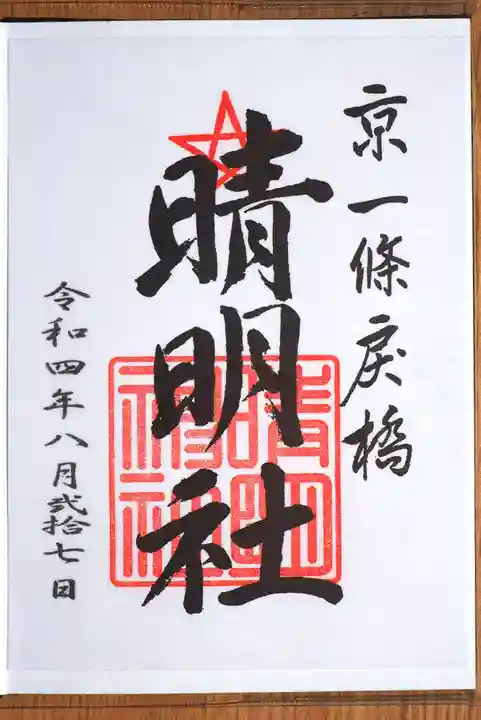 京一條戻橋
晴明社
晴明
神社
令和四年八月弐拾七日